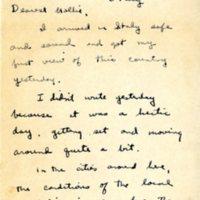 Italy
Dearest Hollie,
I arrived in Italy safe
and sound and got my
first view of this country
yesterday.
I didn't write yesterday
because it was a hectic
day, getting set and moving
around quite a bit.
In the cities around here,
the conditions of the local